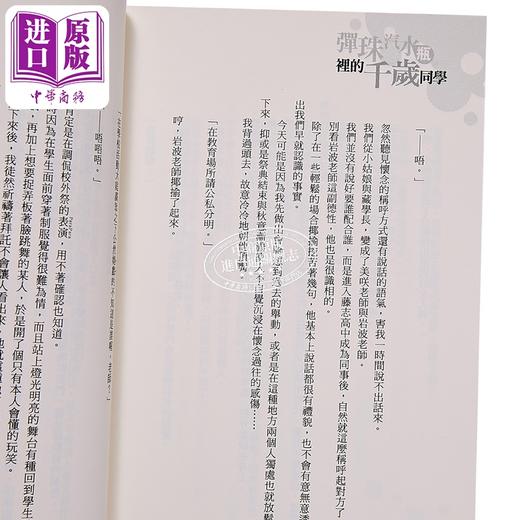 进口原版
中華商務
彈珠汽水瓶
裡的千歲同學
「——唔。」
忽然聽見懷念的稱呼方式還有說話的語氣，害我一時間說不出話來。
我們從小姑娘與藏學長，變成了美咲老師與岩波老師。
我們並沒有說好要誰配合誰，而是進入藤志高中成為同事後，自然就這麼稱呼起對方了
別看岩波老師這副德性，他也是很識相的。
除了在一些輕鬆的場合揶揄挖苦著幾句，他基本上說話都很有禮貌，也不會有意無意透
出我們早就認識的事實。
今天可能是因為我先做出
到過去的舉動，或者是在這種地方兩個人獨處也就放鬆
下來，抑或是祭典結束與秋意
人不自覺沉浸在懷念過往的感傷⋯⋯
我背過頭去，故意冷冷地朝他頂嘴
「在教育場所請公私分明。」
哼，岩波老師揶揄了起來。
——唔唔唔。」
肯定是在調侃校外祭的表演，用不著確認也知道。
時因為在學生面前穿著制服覺得很難為情，而且站上燈光明亮的舞台有種回到學生
，再加上想要捉弄板著臉跳舞的某人，於是開了個只有本人會懂的玩笑。
下來後，我徒然祈禱著拜託不會讓人看出來，